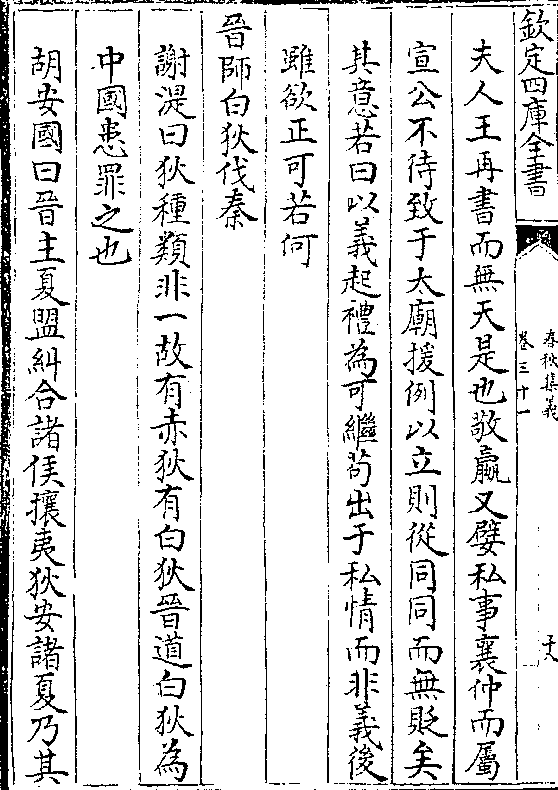 欽定四庫全書
春秋集義
卷三十一
十八
夫人王再書而無天是也敬嬴又嬖私事襄仲而屬
宣公不待致于太廟援例以立則從同同而無貶矣
其意若曰以義起禮為可繼茍出于私情而非義後
雖欲正可若何
晉師白狄伐秦
謝湜曰狄種類非一故有赤狄有白狄晉道白狄為
中國患罪之也
胡安國曰晉主夏盟糾合諸侯攘夷狄安諸夏乃其